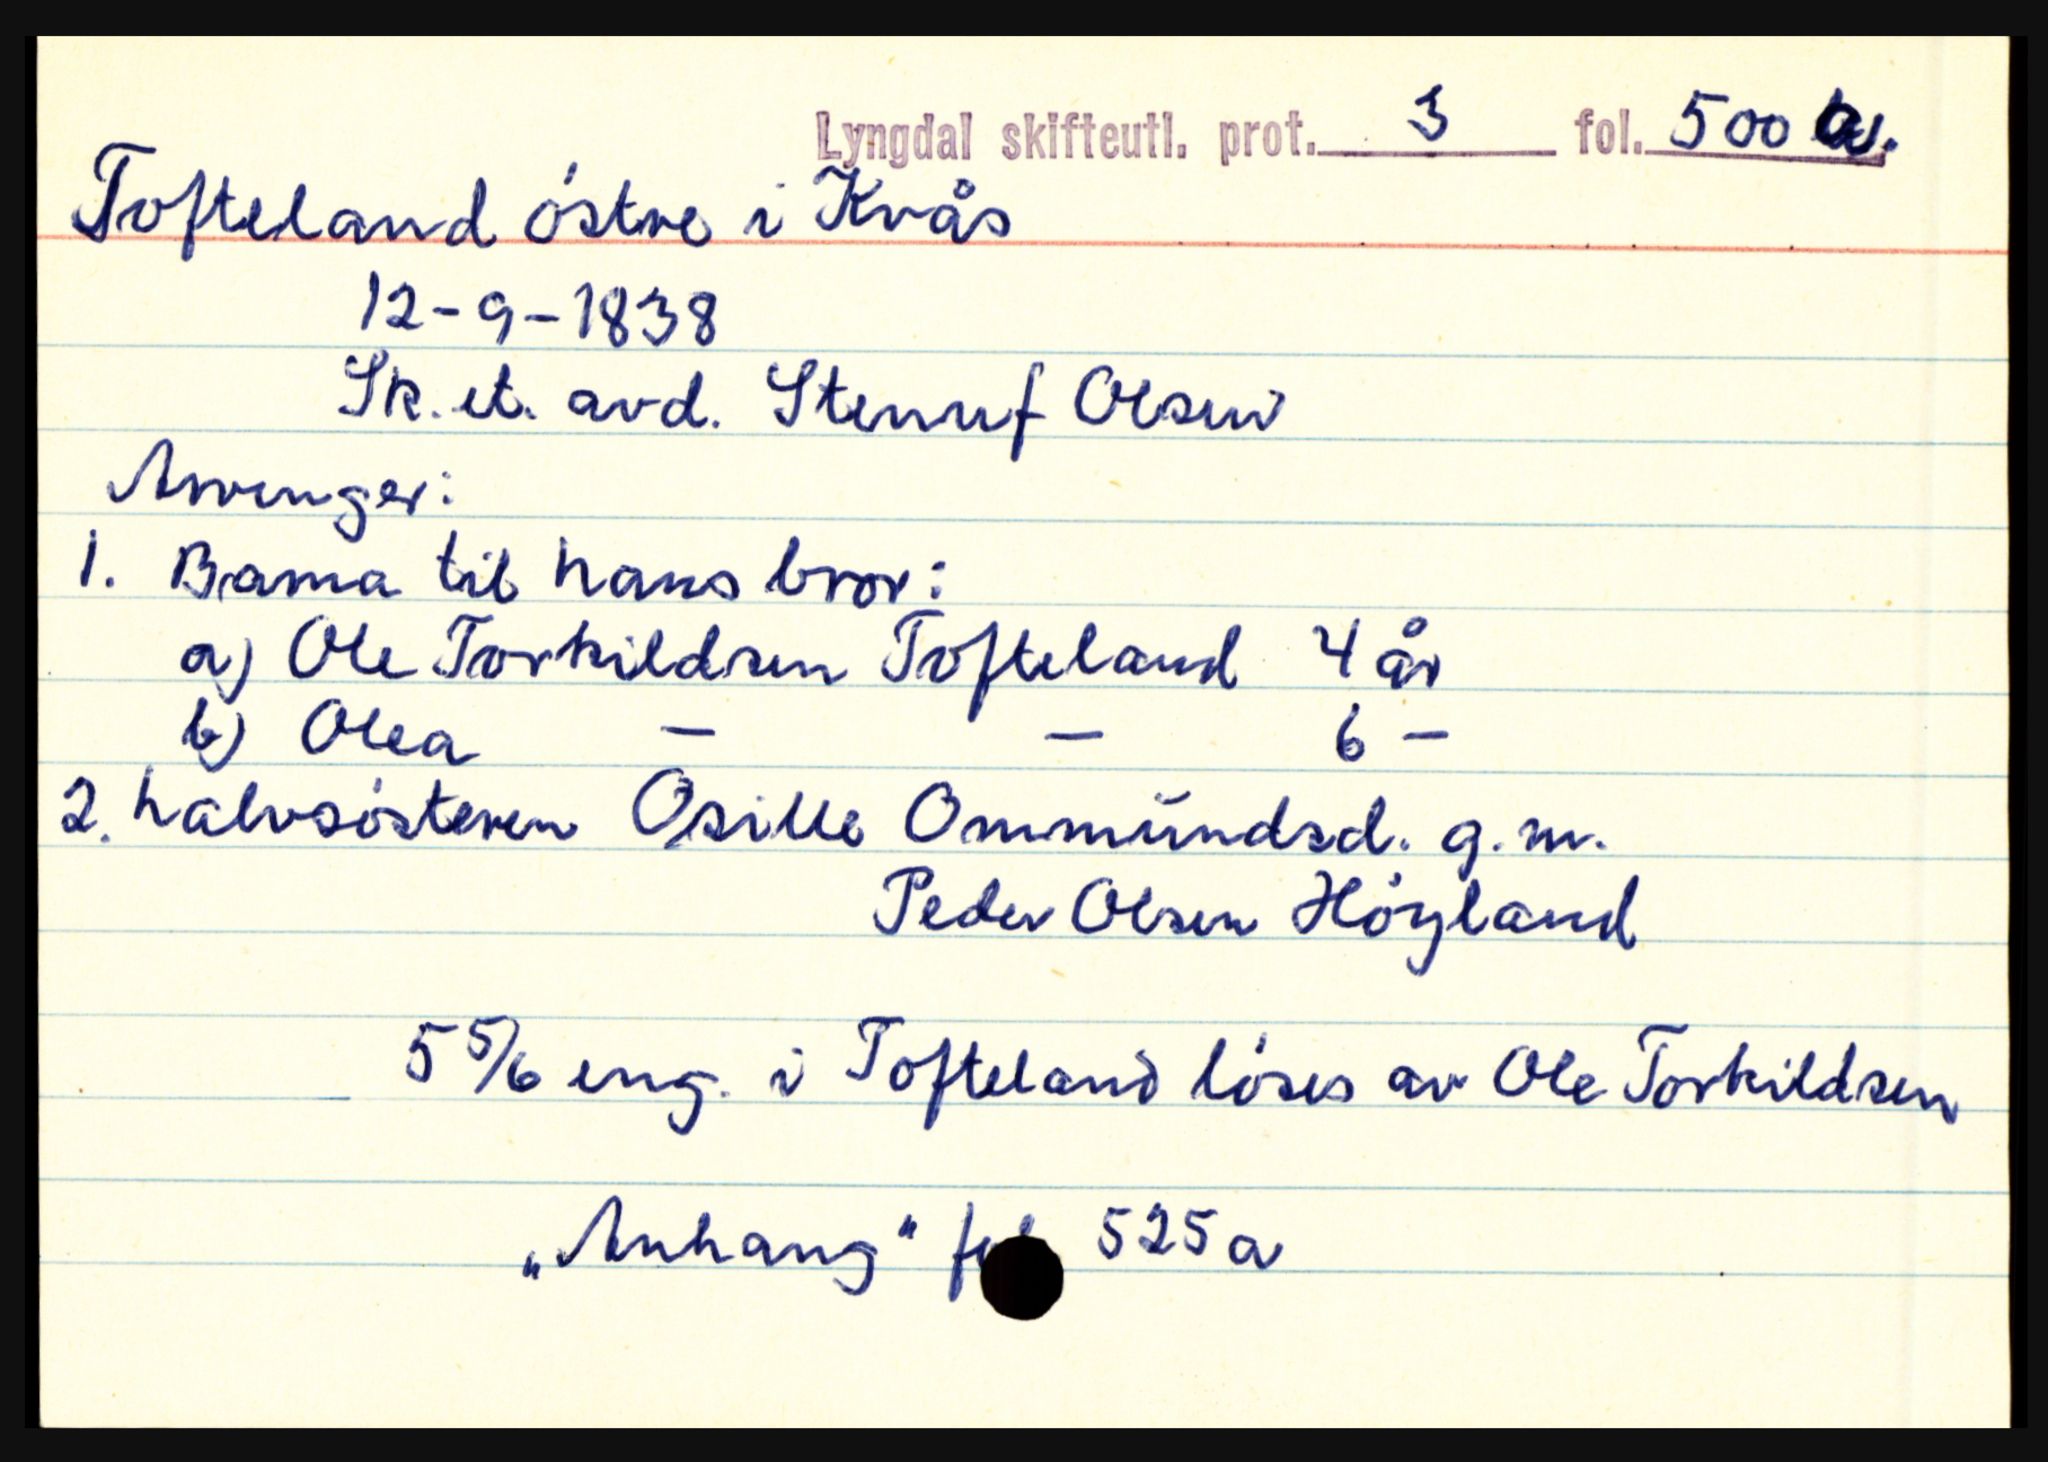 Lyngdal skifteutl. prot. 3 fol. 500
Tofteland östre i Kvås
12-9-1838
Sk. et. avd. Stenuf Olsen
Arvinger:
1. Barna til hans bror:
a) Ole Torkildsen Tofteland 4 år
b) Olea — — 6 —
2. halvsösteren Osille Ommundsd. g.m.
Peder Olsen Höyland
5 5/6 eng. i Tofteland löses av Ole Torkildsen
„Anhang" 525 a